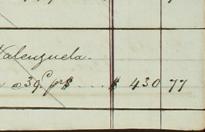 Valenzuela.
a 39 ps $ 430 77